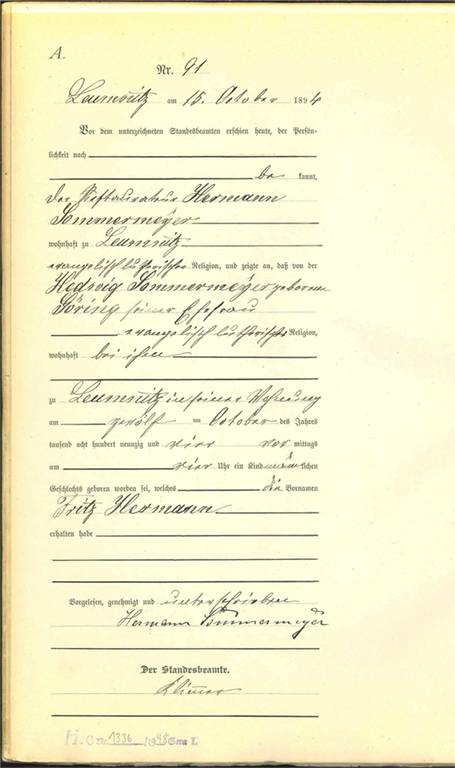 A.
Nr. 91
Leumnitz am 15. October 1894
Vor dem unterzeichneten Standesbeamten erschien heute, der Persön-
lichkeit nach
be kannt,
der Restaurateur Hermann
Sommermeyer
wohnhaft zu Leumnitz
evangelisch lutherischer Religion, und zeigte an, daß von der
Hedwig Sommermeyer geborenen
Söring seiner Ehefrau
evangelisch lutherischer Religion,
wohnhaft bei ihm
zu Leumnitz in seiner Wohnung
am zwölf ten October des Jahres
tausend acht hundert neunzig und vier vor mittags
um vier Uhr ein Kind männlichen
Geschlechts geboren worden sei, welches die Vornamen
Fritz Hermann
erhalten habe
Vorgelesen, genehmigt und unterschrieben
Hermann Sommermeyer
Der Standesbeamte.
H. C Nr. 1336 /1948 Gera I